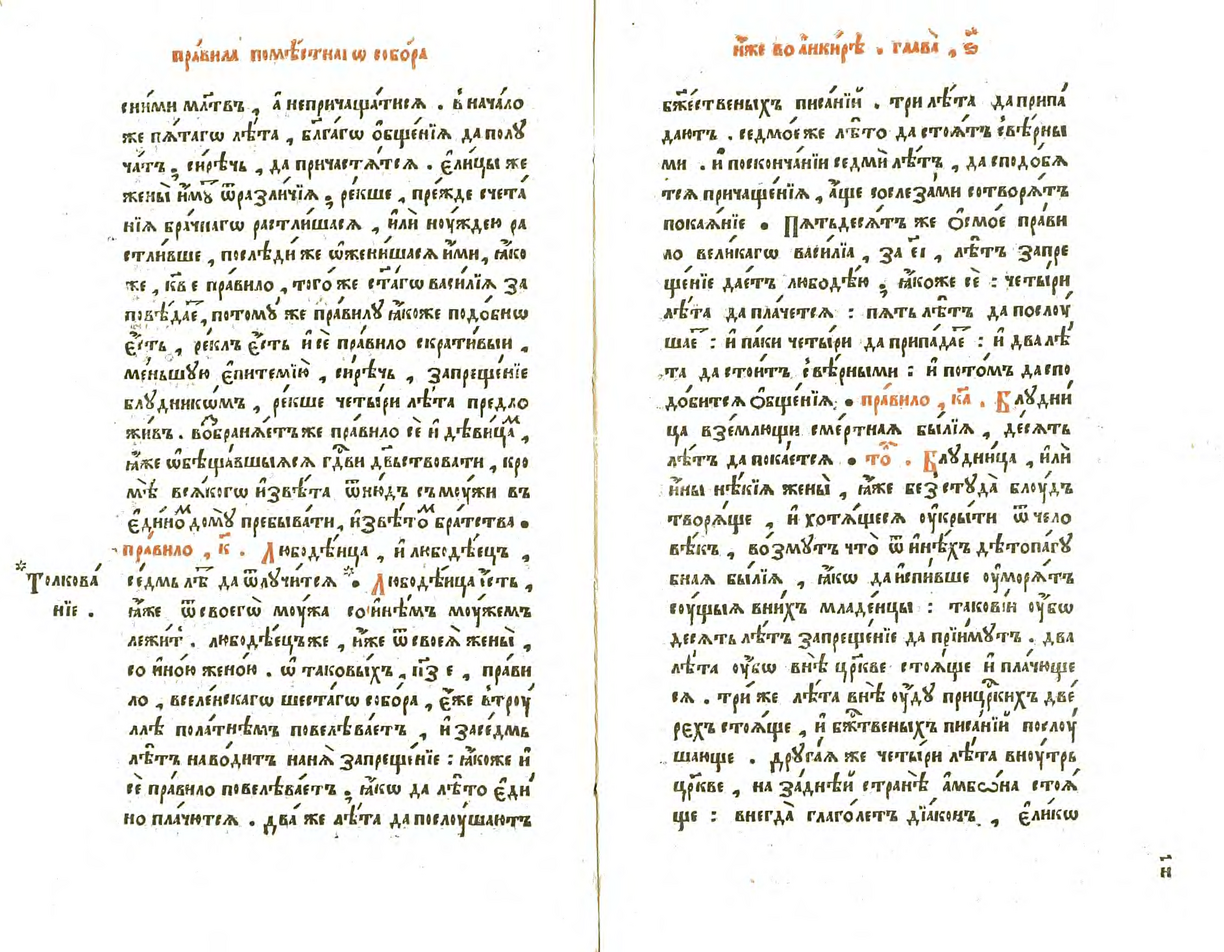 пра́вила помѣ́стнаго собо́ра
сни́ми мл҃твъ , а҆ непричаща́тисѧ . в нача́ло
же пѧ́тагѡ лѣ́та , бл҃га́гѡ ѻ҆бще́нїѧ да полꙋ
ча́тъ , си́рѣчь , да причастѧ́тсѧ . є҆ли́цы же
жены̀ и҆́мꙋ ѿразли́чїѧ , ре́кше , пре́жде счета́
нїѧ бра́чнагѡ растли́шасѧ , и҆лѝ ноу́ждею ра
стли́вше , послѣди́ же ѡ҆жени́шасѧ и҆́ми , ꙗ҆́ко
же , к҃в е пра́вило , того́ же ст҃а́гѡ васи́лїѧ за
повѣ́дае , потомꙋ́ же пра́вилꙋ ꙗ҆́коже подо́бнѡ
є҆́сть , ре́клъ є҆́сть и҆ сѐ пра́вило скрати́выи ,
ме́ньшꙋю є҆питемі́ю , си́рѣчь , запреще́нїе
блꙋдникѡ́мъ , ре́кше четы́ри лѣ́та предло
жи́въ . во҆браня́етъже пра́вило сѐ и҆ дѣви́цам ,
ꙗ҆́же ѡ҆бѣща́вшыѧсѧ гд҃ви дв҃ьствовати , кро
мѣ̀ всѧ́когѡ и҆звѣ́та ѿню́дъ съ моу́жи въ
є҆ди́ном домꙋ̀ пребыва́ти , и҆звѣ́том бра́тства .
пра́вило , к҃ . Любодѣ́ица , и҆ любодѣ́ецъ ,
се́дмь лѣ̑ да ѿлꙋчи́тсѧ * . Любодѣ́ица є҆сть ,
*Толкова́
нїе .
ꙗ҆́же ѿ своегѡ̀ моу́жа со и҆нѣ́мъ моу́жемъ
лежи́т . любодѣ́ецъже , и҆́же ѿ своеѧ̀ жены̀ ,
со и҆но́ю жено́ю . ѡ҆ таковы́хъ , п҃з е , пра́ви
ло , вселе́нскагѡ шеста́гѡ собо́ра , є҆́же в троу́
ллѣ пола́тнѣмъ повелѣва́етъ , и҆ засе́дмь
лѣ́тъ наво́дитъ нанѧ̀ запреще́нїе : ꙗ҆́коже и҆
сѐ пра́вило повелѣва́етъ , ꙗ҆́кѡ да лѣ́то є҆ди́
но пла́чютсѧ . два́ же лѣ́та да послоу́шаютъ
и҆́же во а҆нки́рѣ . глава̀ , ѕ҃
бж҃е́ственыхъ писа́нїй . три лѣ́та да припа́
даютъ . седмо́еже лѣ́то да стоѧ́тъ с вѣ́рны
ми . и҆ поскончанїи седмѝ лѣ́тъ , да сподо́бѧ
тсѧ причаще́нїѧ , а҆́ще сослеза́ми сотворѧ́тъ
покаѧ́нїе . Пѧтьдесѧ́тъ же ѻ҆смо́е пра́ви
ло вели́кагѡ васи́лїа , за є҃і , лѣ́тъ запре
ще́нїе дае́тъ любодѣ́ю , ꙗ҆́коже сѐ : четы́ри
лѣ́та да пла́четсѧ : пѧ́ть лѣ́тъ да послоу́
шае : и҆ па́ки четы́ри да припа́дае : и҆ два лѣ́
та да стои́тъ с вѣ́рными : и҆ пото́мъ да спо
до́битсѧ ѻ҆бще́нїѧ . пра́вило , к҃а . Блꙋдни́
ца взе́млющи сме́ртнаѧ бы́лїѧ , де́сѧть
лѣ́тъ да пока́етсѧ . то . Блꙋдни́ца , и҆лѝ
и҆́ны нѣ́кїѧ жены̀ , ꙗ҆́же без стꙋда̀ блоу́дъ
творѧ́ще , и҆ хотѧ́щесѧ оу҆кры́ти ѿ чело
вѣ́къ , во́змꙋтъ что̀ ѿ и҆нѣ́хъ дѣтопа́гꙋ
бнаѧ бы́лїѧ , ꙗ҆́кѡ да и҆спи́вше оу҆морѧ́тъ
соу́щыѧ вни́хъ младе́нцы : такові́и оу҆́бѡ
де́сѧть лѣ́тъ запреще́нїе да прїи́мꙋтъ . два
лѣ́та оу҆́бѡ внѣ̀ цр҃кве стоѧ́ще и҆ пла́чюще
сѧ . три́ же лѣ́та внѣ̀ оу҆́дꙋ прицр҃кихъ две́
рехъ стоѧ́ще , и҆ бж҃твеныхъ писа́нїй послоу́
шающе . дрꙋга́ѧ же четы́ри лѣ́та вноу́трь
цр҃кве , на за́днѣй странѣ̀ а҆мбѡ́на стоѧ́
ще : внегда̀ глаго́летъ дїа́конъ , є҆ли́кѡ
н҃і